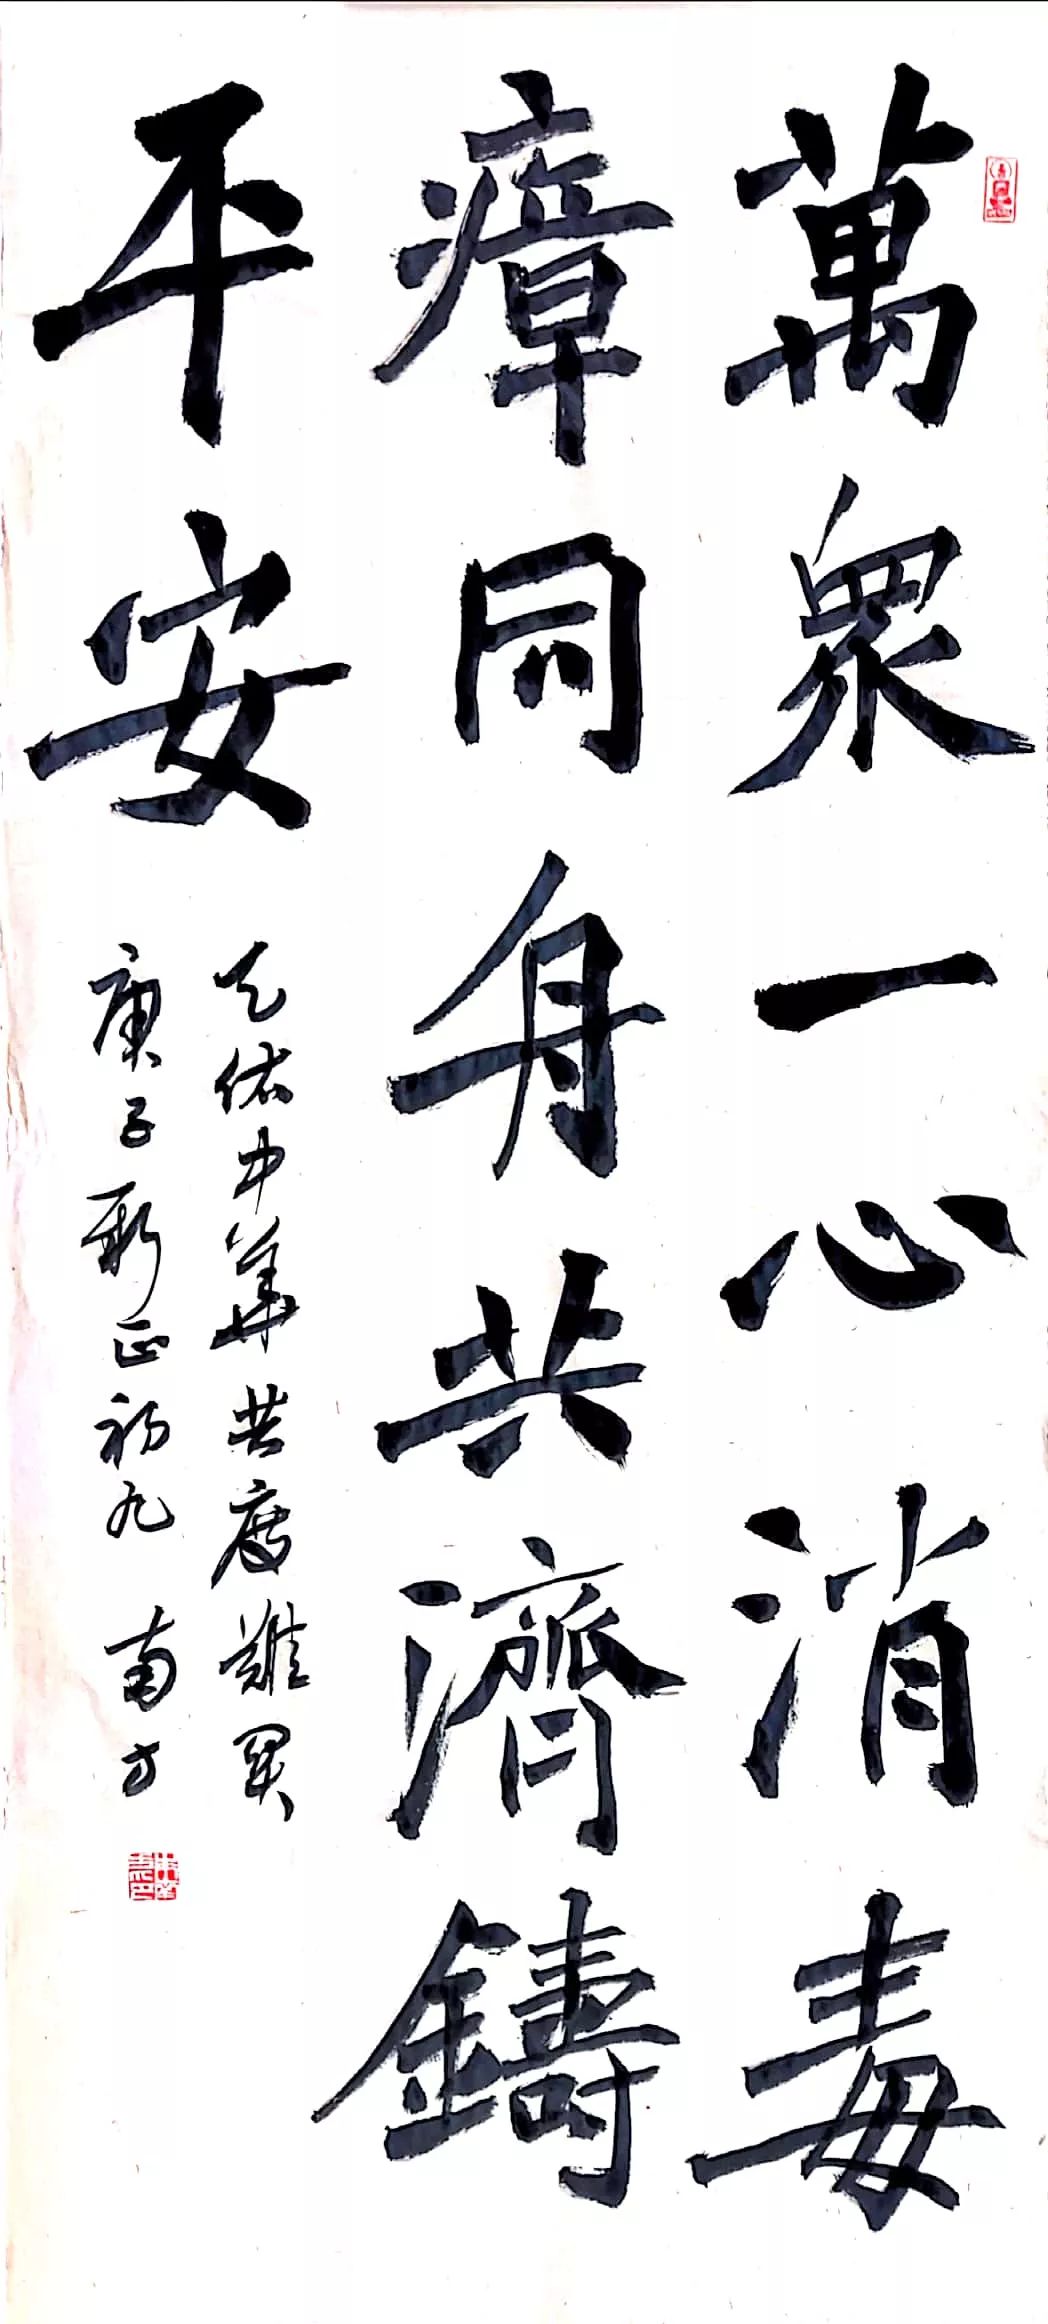 萬眾一心消毒
瘴同舟共濟鑄
平安
天佑中華共度難關
庚子新正初九 南方